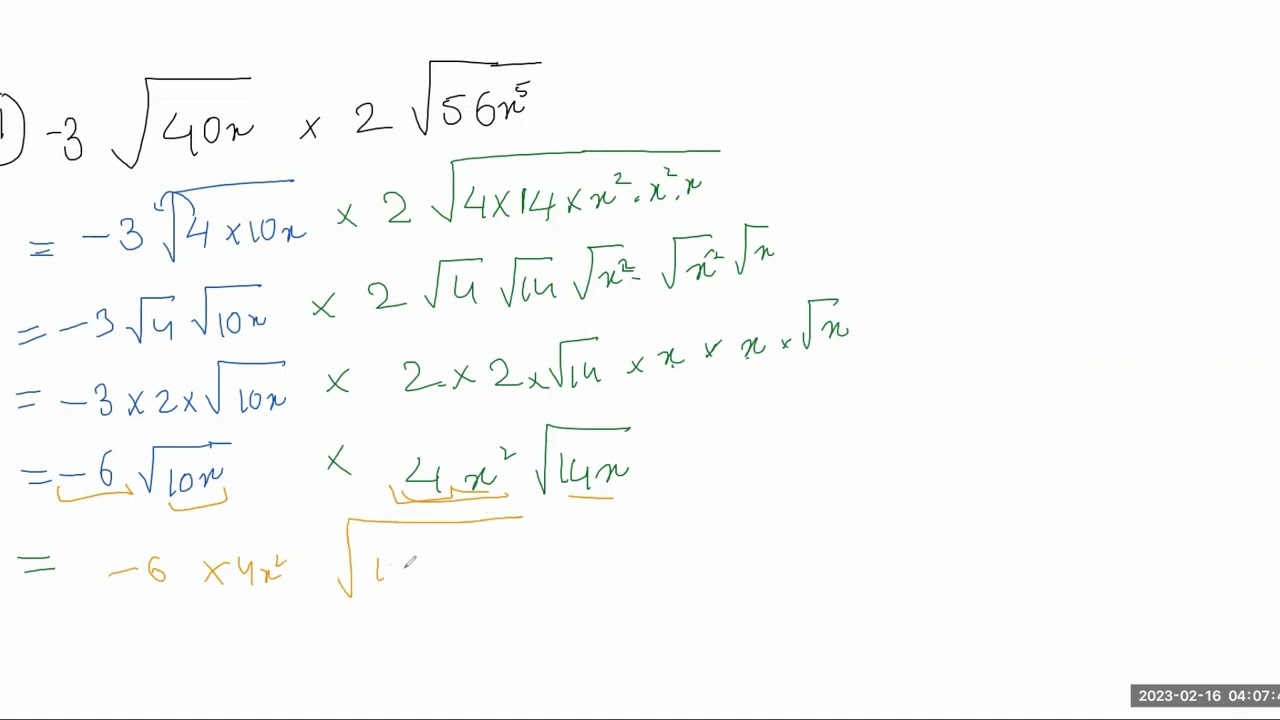 1) -3 √40x × 2 √56x⁵
= -3 √4 × 10x × 2 √4 × 14 × x² · x² · x
= -3 √4 √10x × 2 √4 √14 √x² · √x² √x
= -3 × 2 × √10x × 2 × 2 × √14 × x × x × √x
= -6 √10x × 4x² √14x
= -6 × 4x² √1
2023-02-16 04:07:4